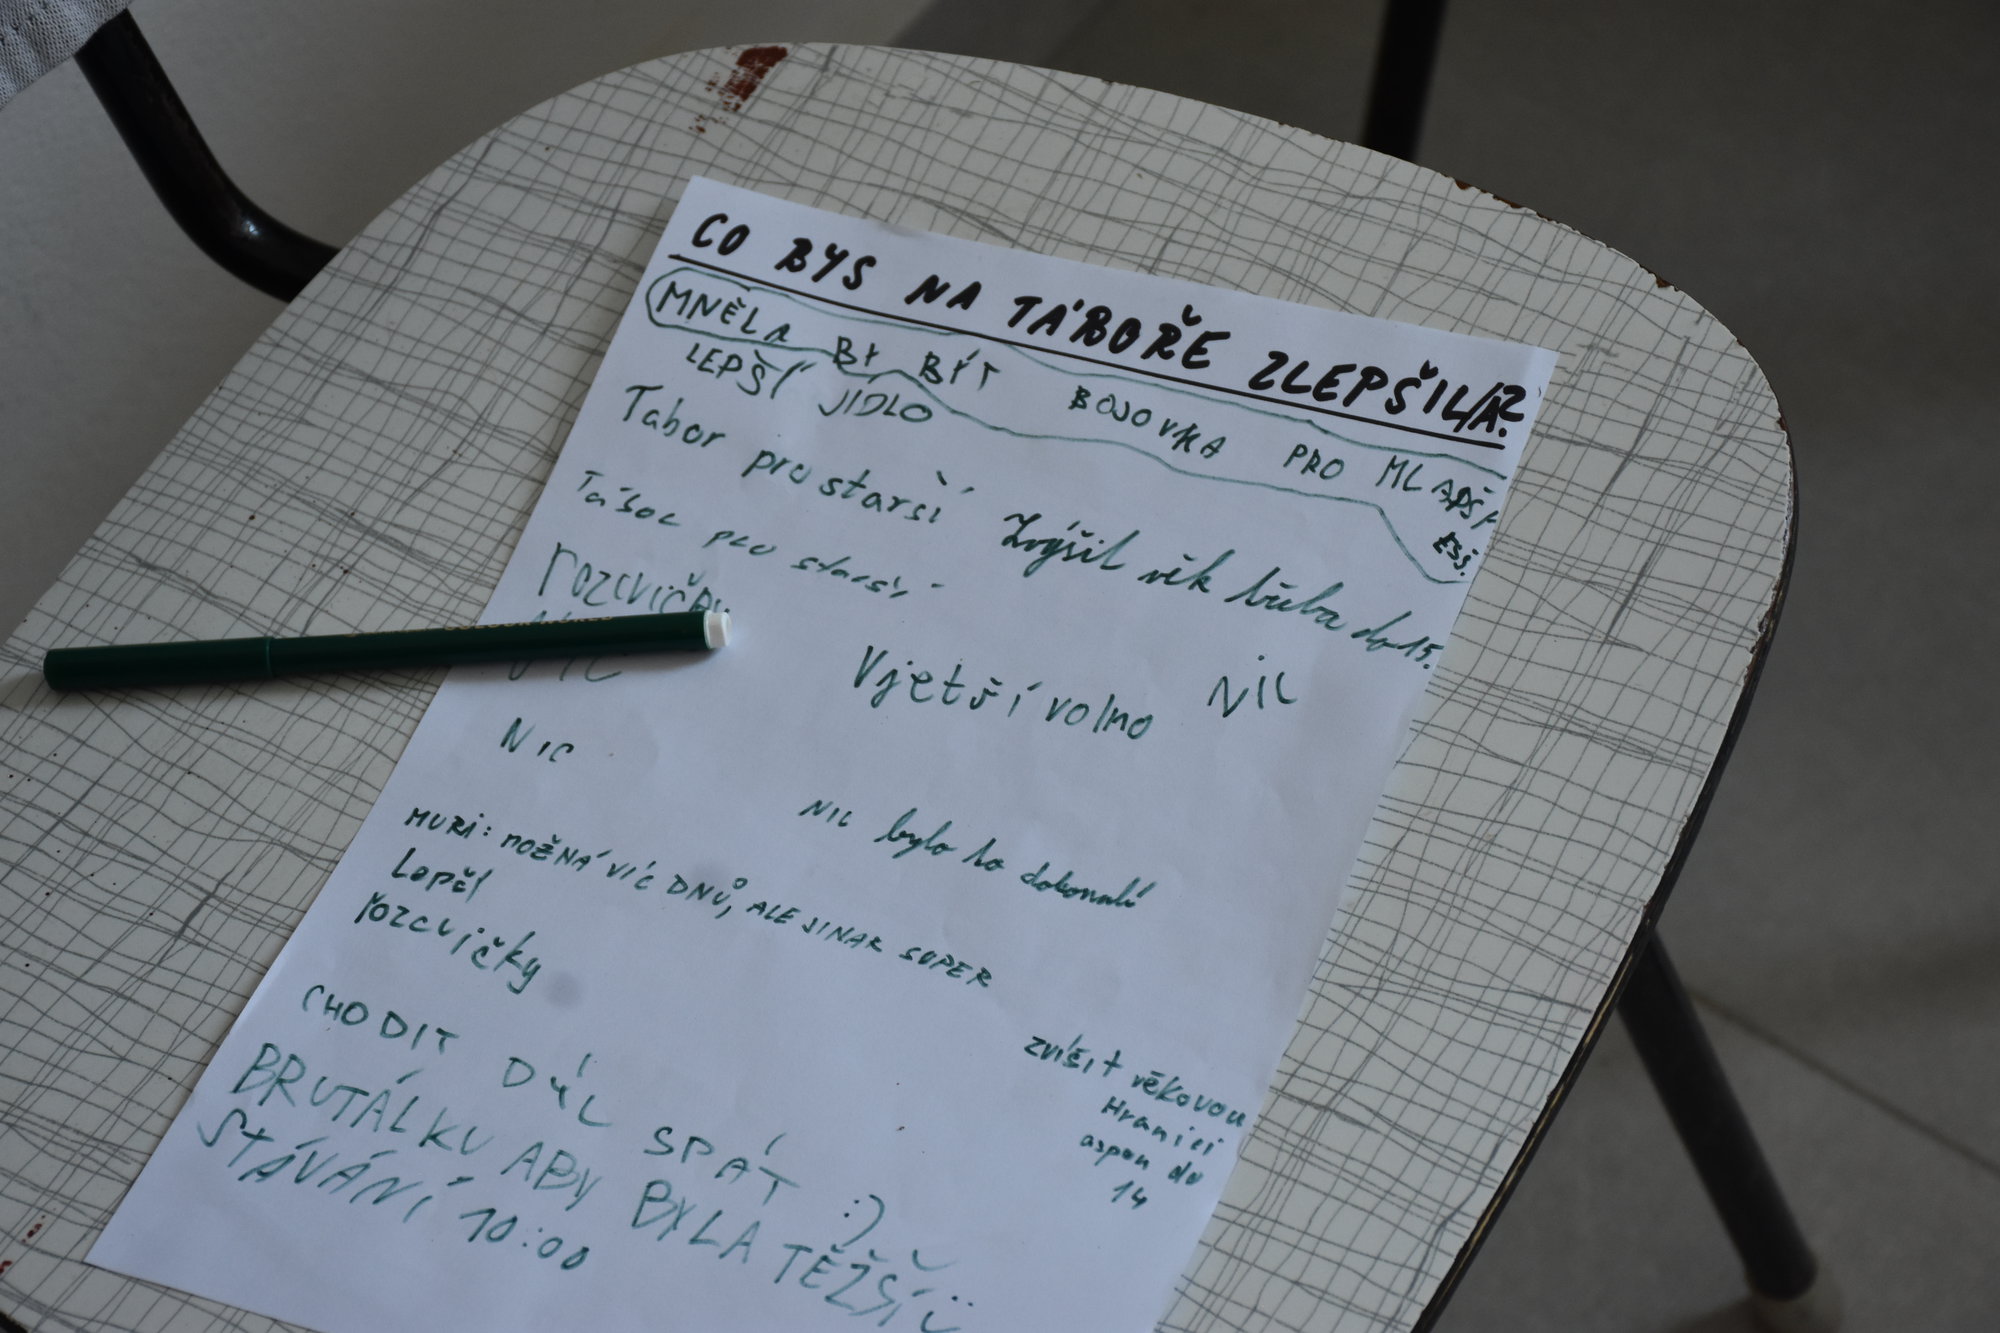 CO BYS NA TÁBOŘE ZLEPŠIL/A?
MNĚLA BY BÝT BOJOVKA PRO MLADŠÍ
LEPŠÍ JÍDLO
Tabor pro starší
Zvýšil věk do 15.
Tábor pro starší
rozcvičky
Vjetší volno
NIC
NIC
NIC bylo to dokonalé
MURI: MOŽNÁ VÍC DNŮ, ALE JINAK SUPER
Lepčí
rozcvičky
CHODIT DÝL SPÁT :)
zvíšit věkovou
Hranici
aspon do
14
BRUTÁLKU ABY BYLA TĚŽŠÍ
STÁVÁNÍ 10:00